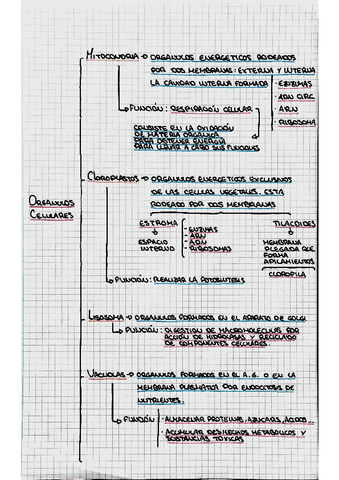 MITOCONDRIA → ORGÁNULOS ENERGÉTICOS RODEADOS
POR DOS MEMBRANAS: EXTERNA Y INTERNA
LA CAVIDAD INTERNA FORMADA
· ENZIMAS
· ADN
· ARN
· RIBOSOMA
→ FUNCIÓN: RESPIRACIÓN CELULAR
CONSISTE EN LA OXIDACIÓN
DE MATERIA ORGÁNICA
PARA OBTENER ENERGÍA
PARA LLEVAR A CABO SUS FUNCIONES
CLOROPLASTOS → ORGÁNULOS ENERGÉTICOS EXCLUSIVOS
DE LAS CELULAS VEGETALES. ESTA
RODEADO POR DOS MEMBRANAS
ORGANULOS
CELULARES
ESTROMA
ESPACIO
INTERNO
- ENZIMAS
- ARN
- ADN
- RIBOSOMAS
TILACOIDES
MEMBRANA
PLEGADA QUE
FORMA
APILAMIENTOS
CLOROFILA
→ FUNCIÓN: REALIZAR LA FOTOSINTESIS
LISOSOMA → ORGÁNULOS FORMADOS EN EL APARATO DE GOLGI
→ FUNCIÓN: DIGESTION DE MACROMOLECULAS POR
ACCIÓN DE HIDROLASAS Y RECICLADO
DE COMPONENTES CELULARES.
VACUOLAS → ORGÁNULOS FORMADOS EN EL A.G. O EN LA
MEMBRANA PLASMATICA POR ENDOCITOSIS DE
NUTRIENTES.
→ FUNCIÓN
· ALMACENAR PROTEINAS, AZUCARES, ÁCIDOS...
· ACUMULAR DESHECHOS METABÓLICOS Y
SUSTANCIAS TÓXICAS